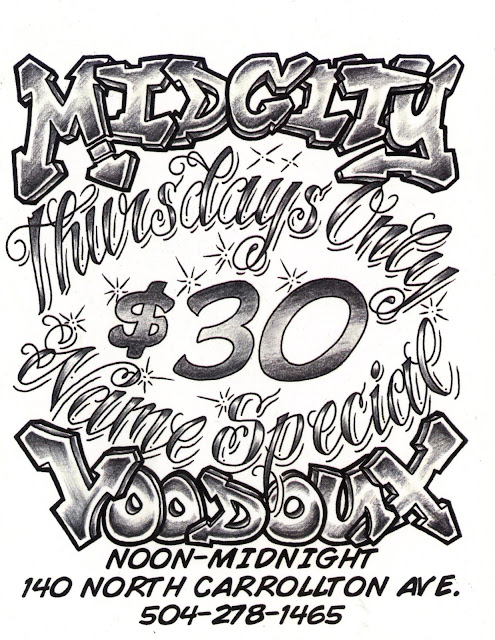 MIDCITY
Thursdays Only
$30
Name Special
VOODOUX
NOON-MIDNIGHT
140 NORTH CARROLLTON AVE.
504-278-1465